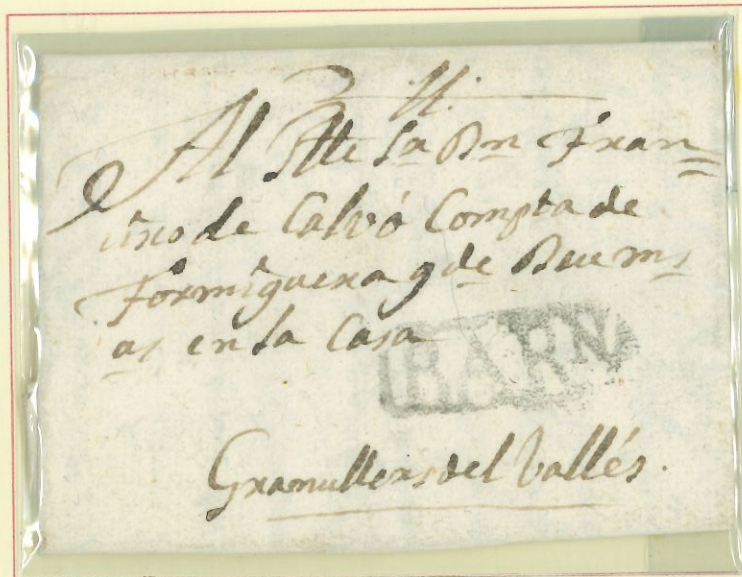 Al Ille Sr Dn Fran=
cisco de Calvó Compta de
Formiguera q de Buems
as en la Casa
BARN
Gramullers del Vallés.